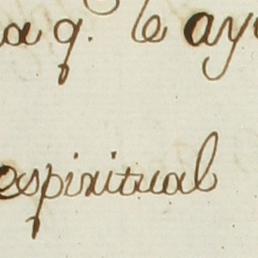 q. le
espiritual